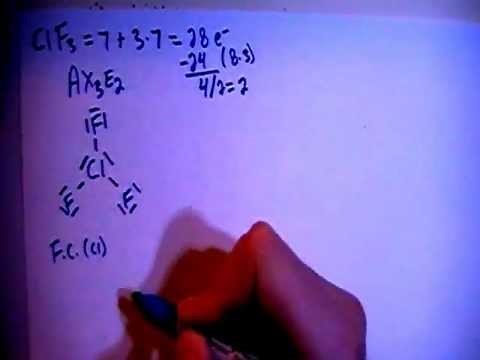 ClF₃ = 7 + 3·7 = 28 e⁻
-24 (8·3)
AX₃E₂ 4/2=2
F
Cl
F F
F.C. (Cl)